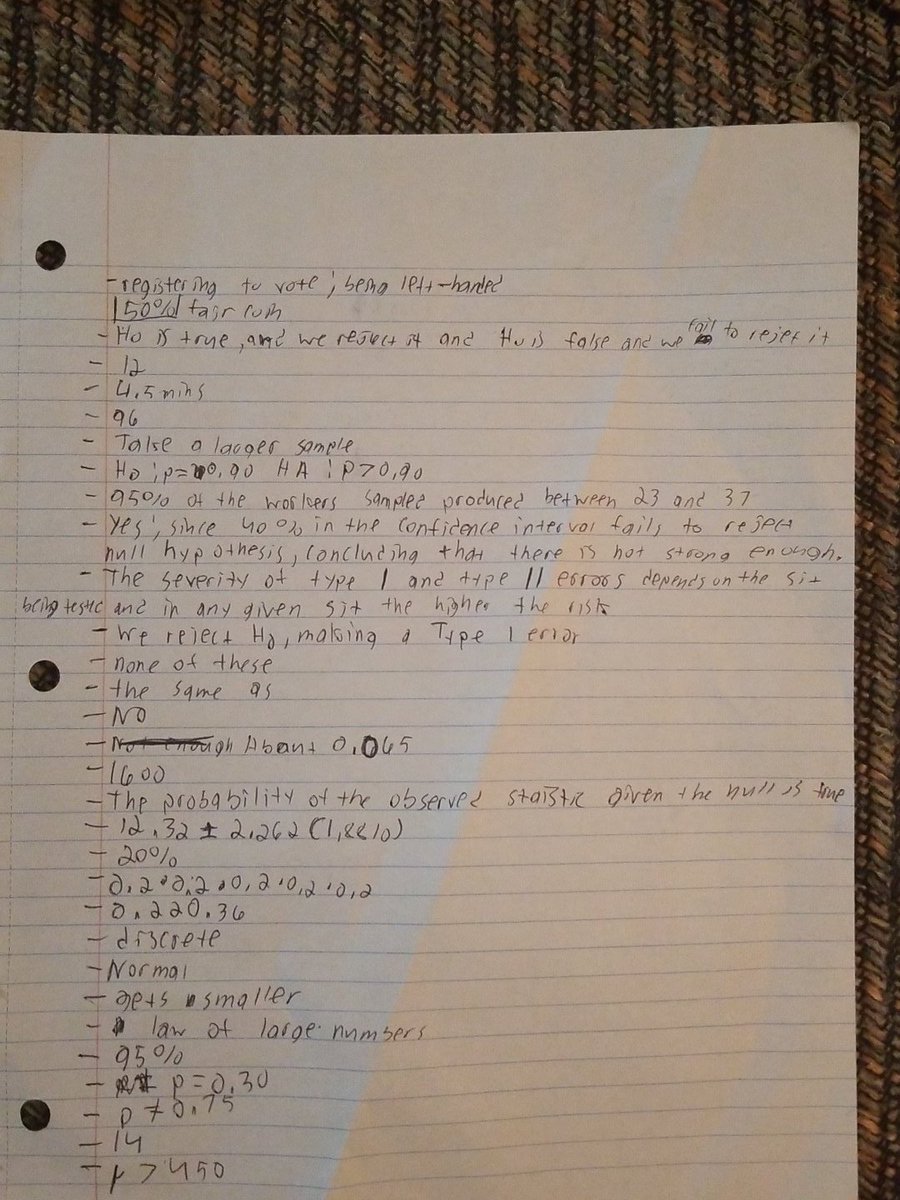 - registering to vote; being left-handed
50% fair coin
- Ho is true, and we reject it and Ho is false and we fail to reject it
- 12
- 4.5 mins
- 96
- Take a larger sample
- Ho: p=0.90 HA: p>0.90
- 95% of the workers sampled produced between 23 and 37
- Yes, since 40% in the confidence interval fails to reject
null hypothesis, concluding that there is not strong enough.
- The severity of type I and type II errors depends on the sit
being tested and in any given sit the higher the risk
- We reject Ho, making a Type I error
- none of these
- the same as
- NO
- Not enough About 0.065
- 1600
- The probability of the observed staistic given the null is true
- 12.32 ± 2.262 (1.8810)
- 20%
- 0.2•0.2•0.2•0.2•0.2
- 0.220.36
- discrete
- Normal
- gets smaller
- law of large numbers
- 95%
- p=0.30
- p≠0.75
- 14
- μ > 450